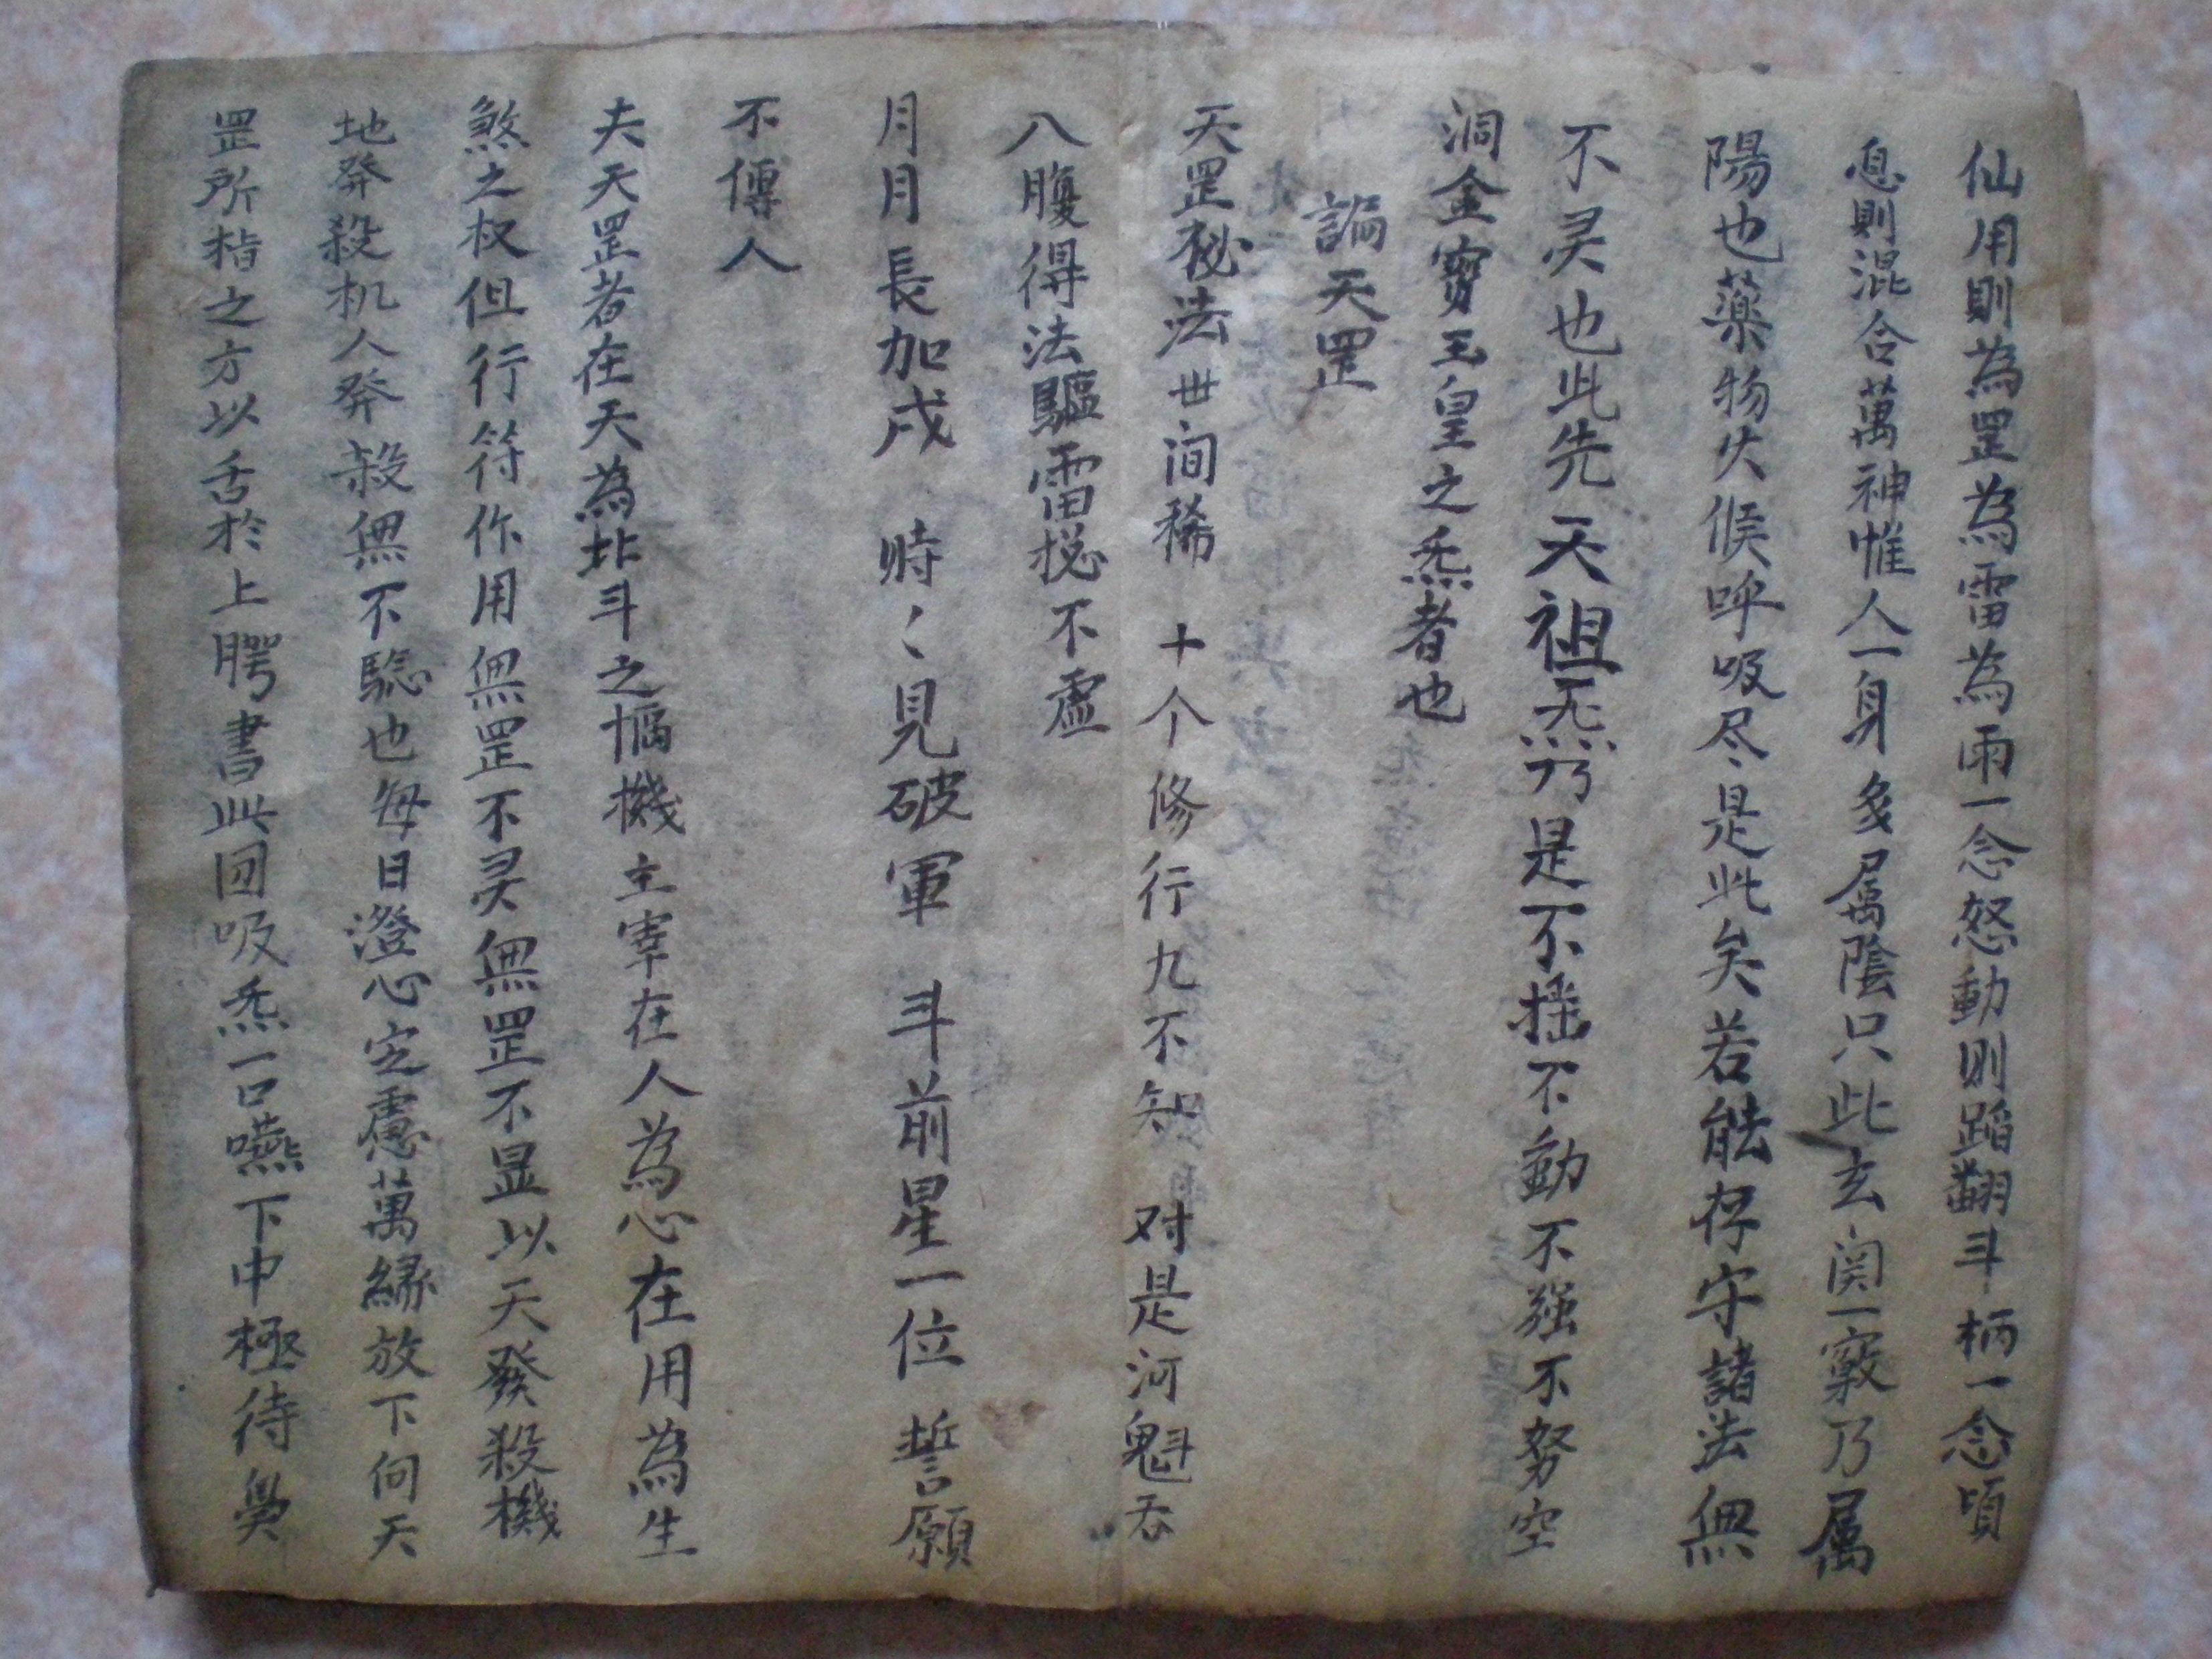 仙用則為罡為雷為雨一念怒動则蹈翻斗柄一念頃
息則混合萬神惟人一身多属陰只此玄関一竅乃属
陽也藥物火候呼吸尽是此矣若能存守諸法無
不灵也此先天祖炁乃是不摇不動不强不努空
洞金寶玉皇之炁者也
論天罡
天罡秘法世间稀 十个修行九不知 对是河魁吞
八腹得法驅雷搃不虛
月月長加戌 時〻見破軍 斗前星一位 誓願
不傳人
夫天罡者在天為北斗之樞機主宰在人為心在用為生
煞之权但行符作用無罡不灵無罡不显以天發殺機
地発殺机人発殺無不驗也每日澄心定慮萬緣放下向天
罡所指之方以舌於上腭書此回吸炁一口嚥下中極待與